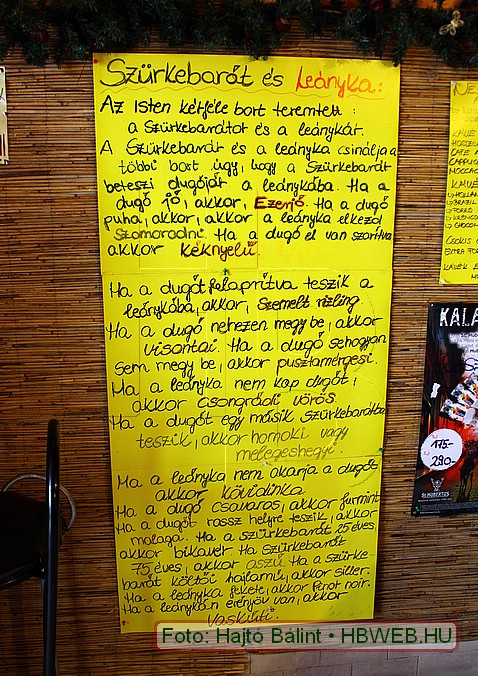 Szürkebarát és Leányka:
Az Isten kétféle bort teremtett:
a Szürkebarátot és a leánykát.
A Szürkebarát és a leányka csinálja a
többi bort úgy, hogy a Szürkebarát
beteszi dugóját a leánykába. Ha a
dugó jó, akkor, Ezerjó. Ha a dugó
puha, akkor, akkor a leányka elkezd
Szomorodni. Ha a dugó el van szorítva
akkor kéknyelű.
Ha a dugót felaprítva teszik a
leánykába, akkor, Szemelt rizling.
Ha a dugó nehezen megy be, akkor
visontai. Ha a dugó sehogyan
sem megy be, akkor pusztamérgesi.
Ha a leányka nem kap dugót,
akkor csongrádi vörös.
Ha a dugót egy másik szürkebarátba
teszik, akkor homoki vagy
melegeshegyi.
Ha a leányka nem akarja a dugót
akkor kövidinka.
Ha a dugó csavaros, akkor furmint
Ha a dugót rossz helyre teszik, akkor
malaga. Ha a szürkebarát 25 éves,
akkor bikavér. Ha Szürkebarát
75 éves, akkor aszú. Ha a szürke-
barát költői hajlamú, akkor siller.
Ha a leányka fekete, akkor Pinot noir.
Ha a leánykán erényöv van, akkor
vaskúti.
KALA
175.-
290.-
St.HUBERTUS
KÁVÉ
CAPPUC
MOCCA
KÁVÉ
HOLLAN
BRAZIL
FORRÓ
EXTRA FOR
KÁVÉK E
Fotó: Hajtó Bálint • HBWEB.HU